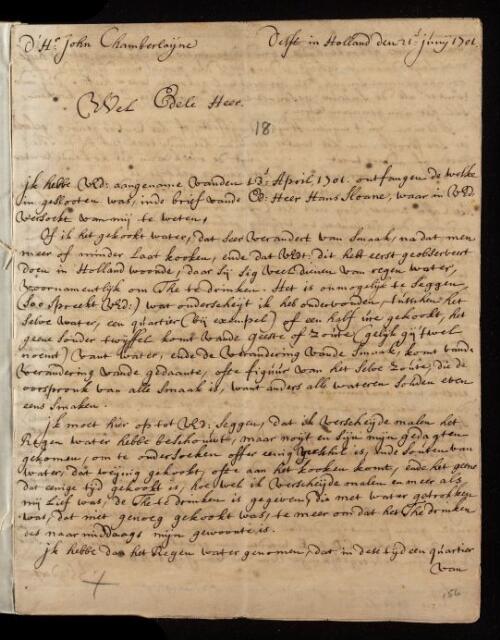 D'Hr. John Chamberlaijne Delft in Holland den 21e. Junij 1701.
Wel Edele Heer.
18
jk hebbe UEd: aangename vanden 13e. April. 1701. ontfangen de welke
in geslooten was, inde brief vande Ed: Heer Hans Sloane, waar in UEd
versoekt van mij te weten,
Of ik het gekookt water, dat seer verandert van smaak, na dat men
meer of minder laat kooken, ende dat UEd: dit hebt eerst geobserveert
doen in Holland woonde, daar sij sig veel dienen van regen water,
voornamentlijk om The te drinken. Het is onmogelijk te seggen
(soo spreekt UEd:) wat onderscheijt ik heb ondervonden, tusschen het
selve water, een quartier (bij exempel) of een half ure gekookt, het
gene sonder twijffel komt vande geeste of zoute (gelijk gij 't wel
noemt) vant water, ende de verandering vande smaak, komt vande
verandering vande gedaante, ofte figuur van het selve zoute, die de
oorspronk van alle smaak is, want anders alle wateren souden even
eens smaken.
jk moet hier op tot UEd: seggen, dat ik verscheijde malen het
Regen water hebbe beschouwt, maar noijt en sijn mijn gedagten
gekomen, om te ondersoeken offer eenig is, inde souten van
water, dat weijnig gekookt, ofte aan het kooken komt, ende het gene
dat eenige tijd gekookt is, hoe wel ik verscheijde malen en meer als
mij lief was, de The te drinken is gegeven, die met water getrokken
was, dat niet genoeg gekookt was, te meer om dat het The drinken
des naar middags mijn gewoonte is.
jk hebbe dan het Regen water genomen, dat in dese tijd een quartier
van
156